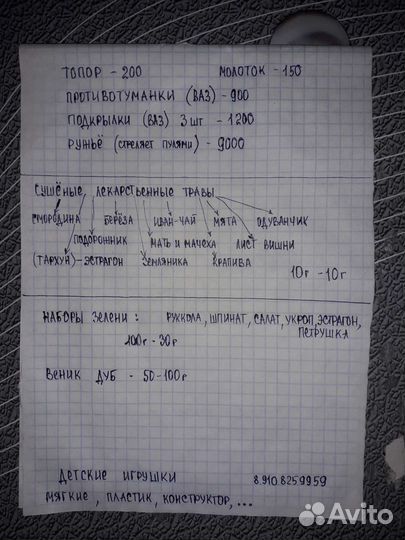 ТОПОР - 200 МОЛОТОК - 150
ПРОТИВОТУМАНКИ (ВАЗ) - 900
ПОДКРЫЛКИ (ВАЗ) 3 шт - 1200
РУЖЬЁ (стреляет пулями) - 9000
СУШЁНЫЕ ЛЕКАРСТВЕННЫЕ ТРАВЫ
СМОРОДИНА БЕРЁЗА ИВАН-ЧАЙ МЯТА ОДУВАНЧИК
ПОДОРОЖНИК МАТЬ И МАЧЕХА ЛИСТ ВИШНИ
(ТАРХУН) - ЭСТРАГОН ЗЕМЛЯНИКА КРАПИВА
10г - 10г
НАБОРЫ ЗЕЛЕНИ: РУККОЛА, ШПИНАТ, САЛАТ, УКРОП, ЭСТРАГОН,
ПЕТРУШКА
100г - 30г
ВЕНИК ДУБ - 50-100г
ДЕТСКИЕ ИГРУШКИ 8.910 8259959
МЯГКИЕ, ПЛАСТИК, КОНСТРУКТОР,...
Avito